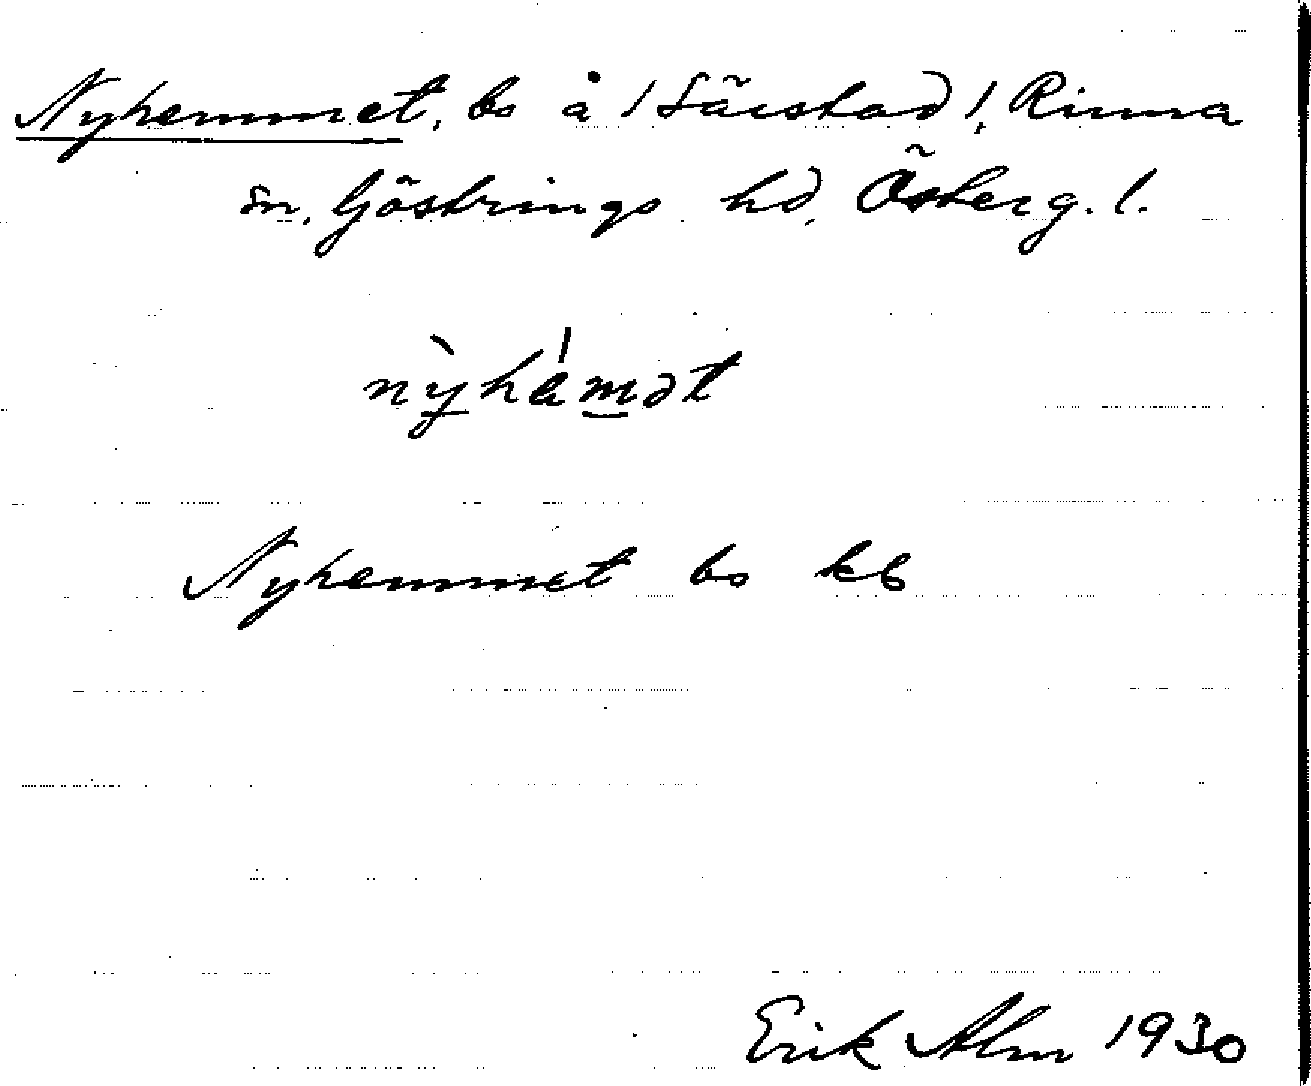 Nyhemmet, bs å /Särstad/, Rinna
sn, Göstrings hd, Österg. l.
nỳhèmət
Nyhemmet bs kb
Erik Alm 1930